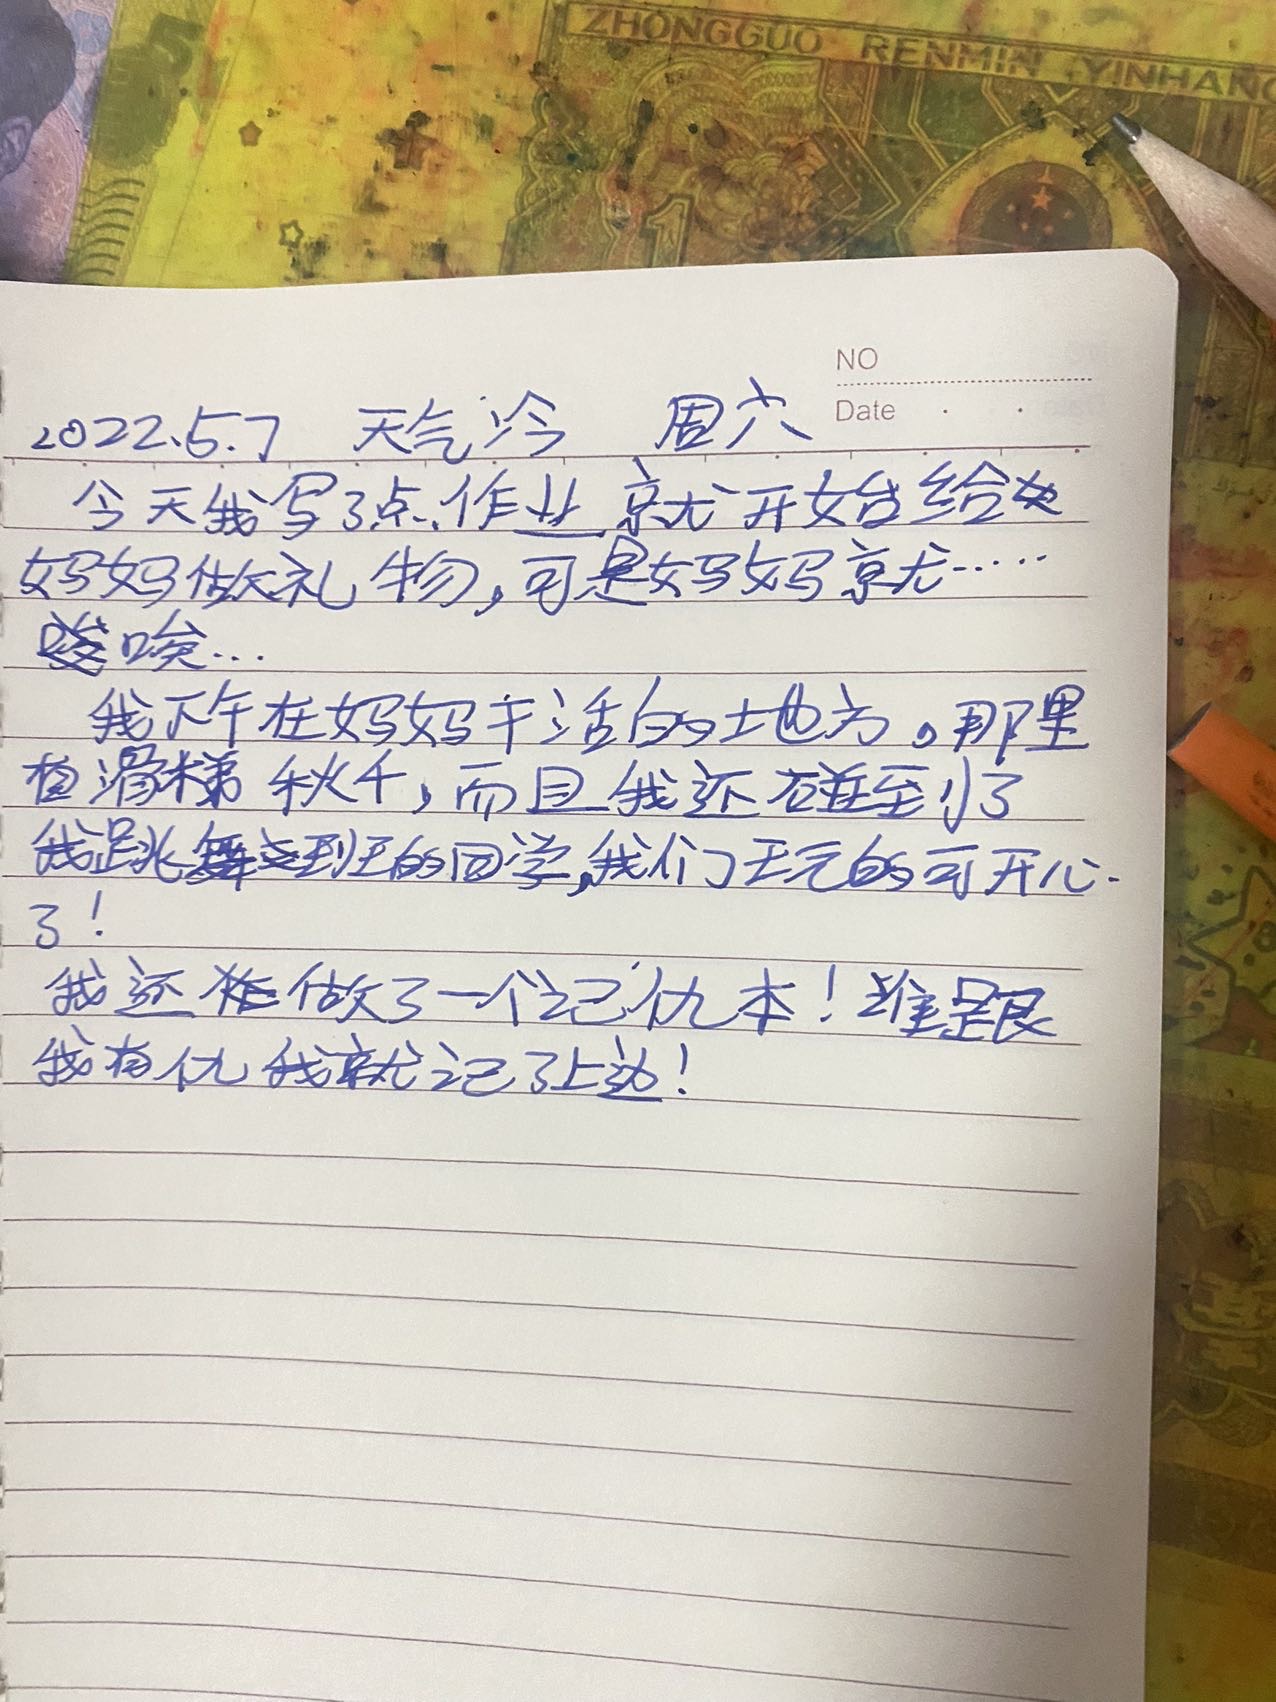 ZHONGGUO RENMIN YINHANG
1
NO
Date
2022.5.7 天气冷 周六
今天我写了点作业就开始给
妈妈做礼物,可是妈妈就……
唉…
我下午在妈妈干活的地方。那里
有滑梯秋千,而且我还碰到了
我跳舞班的同学,我们玩的可开心
了!
我还做了一个记仇本!谁是跟
我有仇我就记了上边!